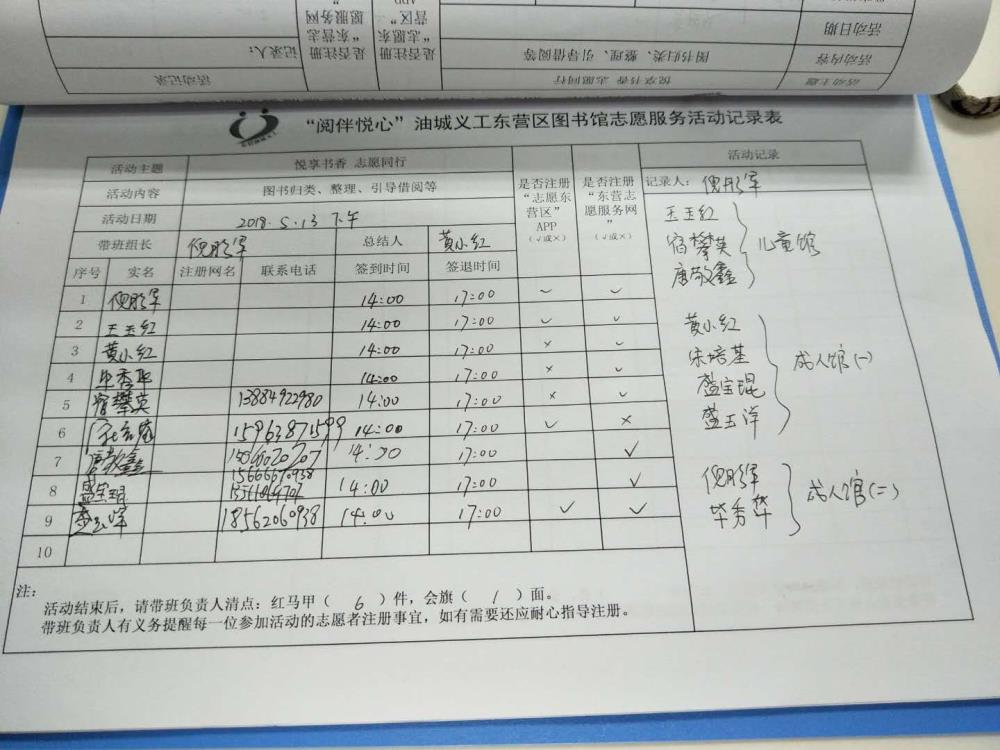 活动记录
活动主题 悦享书香 志愿同行
活动内容 图书归类、整理、引导借阅等
活动日期
记录人：
是否注册“志愿东营区”APP
是否注册“东营志愿服务网”
“阅伴悦心”油城义工东营区图书馆志愿服务活动记录表
活动主题 悦享书香 志愿同行
活动内容 图书归类、整理、引导借阅等
活动日期 2018.5.13 下午
带班组长 倪彤军 总结人 黄小红
是否注册
“志愿东
营区”
APP
（√或×）
是否注册
“东营志
愿服务网
”
（√或×）
活动记录
记录人：倪彤军
序号 实名 注册网名 联系电话 签到时间 签退时间
1 倪彤军 14:00 17:00 √ √
2 王玉红 14:00 17:00 √ √
3 黄小红 14:00 17:00 × √
4 毕秀华 14:00 17:00 × √
5 宿攀英 13884922980 14:00 17:00 × √
6 15963871599 14:00 17:00 √ ×
7 唐敬鑫 14:00 17:00 √
8 盛宝琨 15666670938 14:00 17:00 √
9 18562060938 14:00 17:00 √ √
10
王玉红
宿攀英
唐敬鑫
儿童馆
黄小红
宋培基
盛宝琨
盛玉洋
成人馆(一)
倪彤军
毕秀华
成人馆(二)
注：
活动结束后，请带班负责人清点：红马甲（ 6 ）件，会旗（ 1 ）面。
带班负责人有义务提醒每一位参加活动的志愿者注册事宜，如有需要还应耐心指导注册。